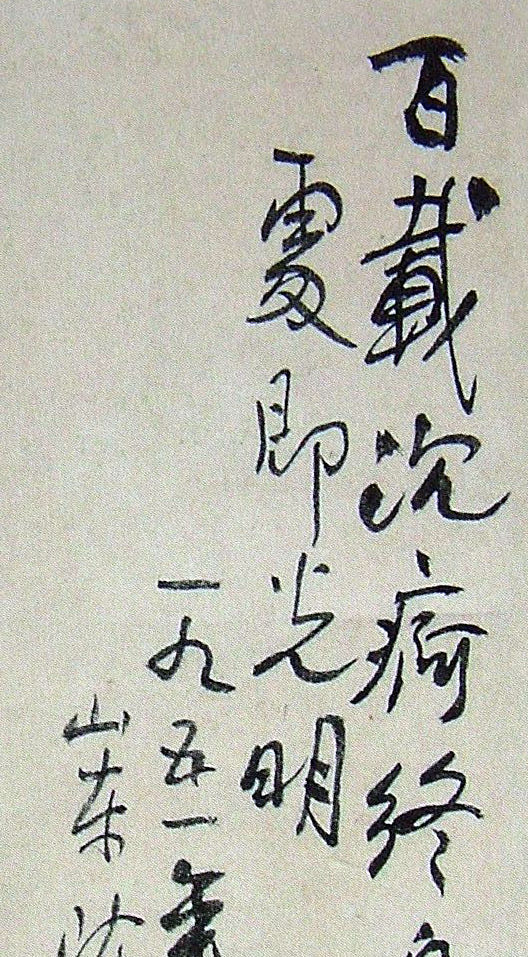 百載沉疴終
霞即光明
一九五一年
山东